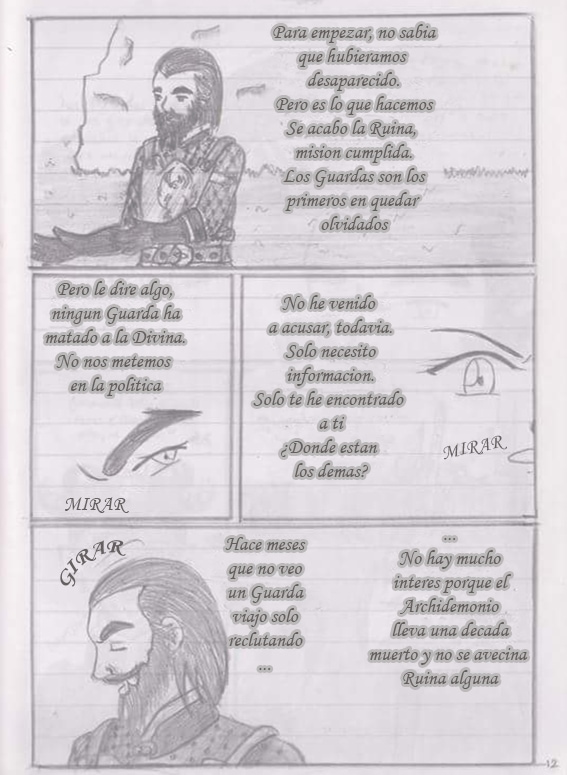 Para empezar, no sabia
que hubieramos
desaparecido.
Pero es lo que hacemos
Se acabo la Ruina,
mision cumplida.
Los Guardas son los
primeros en quedar
olvidados
Pero le dire algo,
ningun Guarda ha
matado a la Divina.
No nos metemos
en la politica
MIRAR
No he venido
a acusar, todavia.
Solo necesito
informacion.
Solo te he encontrado
a ti
¿Donde estan
los demas?
MIRAR
GIRAR
Hace meses
que no veo
un Guarda
viajo solo
reclutando
...
...
No hay mucho
interes porque el
Archidemonio
lleva una decada
muerto y no se avecina
Ruina alguna
12